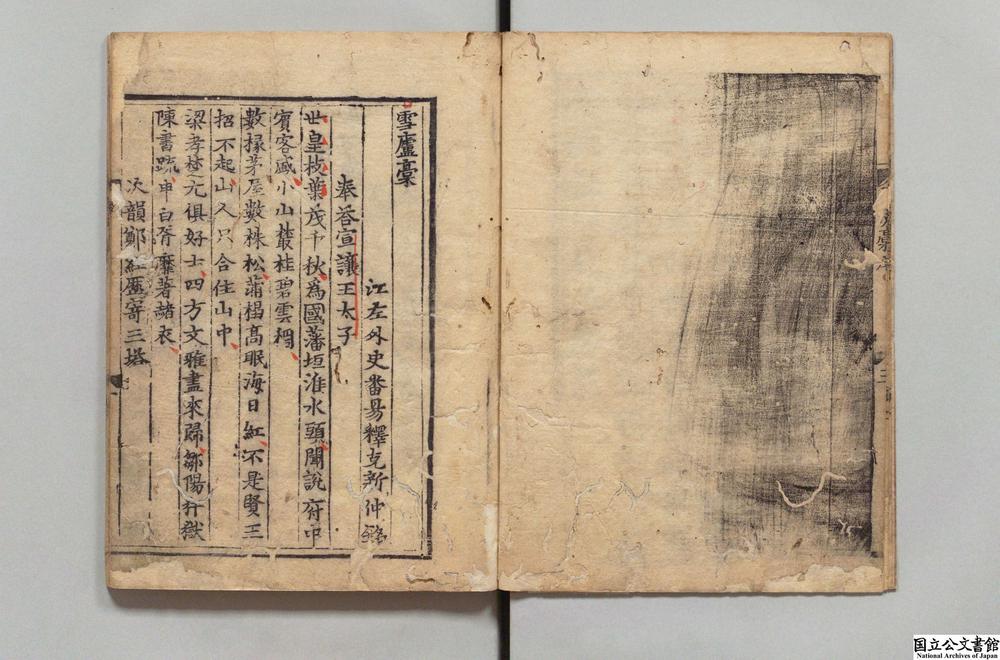 雪廬藁
江左外史番昜釋克新仲銘
奉答宣讓王太子
世皇枝葉茂千秋為國藩垣淮水頭聞說府中
賓客盛小山叢桂碧雲稠
數椽茅屋數株松蒲榻高眠海日紅不是賢王
招不起山人只合住山中
梁孝楚元俱好士四方文雅盡來歸鄒陽
獄
陳書疏申白胥靡著赭衣
次韻鄭
寄三
国立公文書館
National Archives of Japan